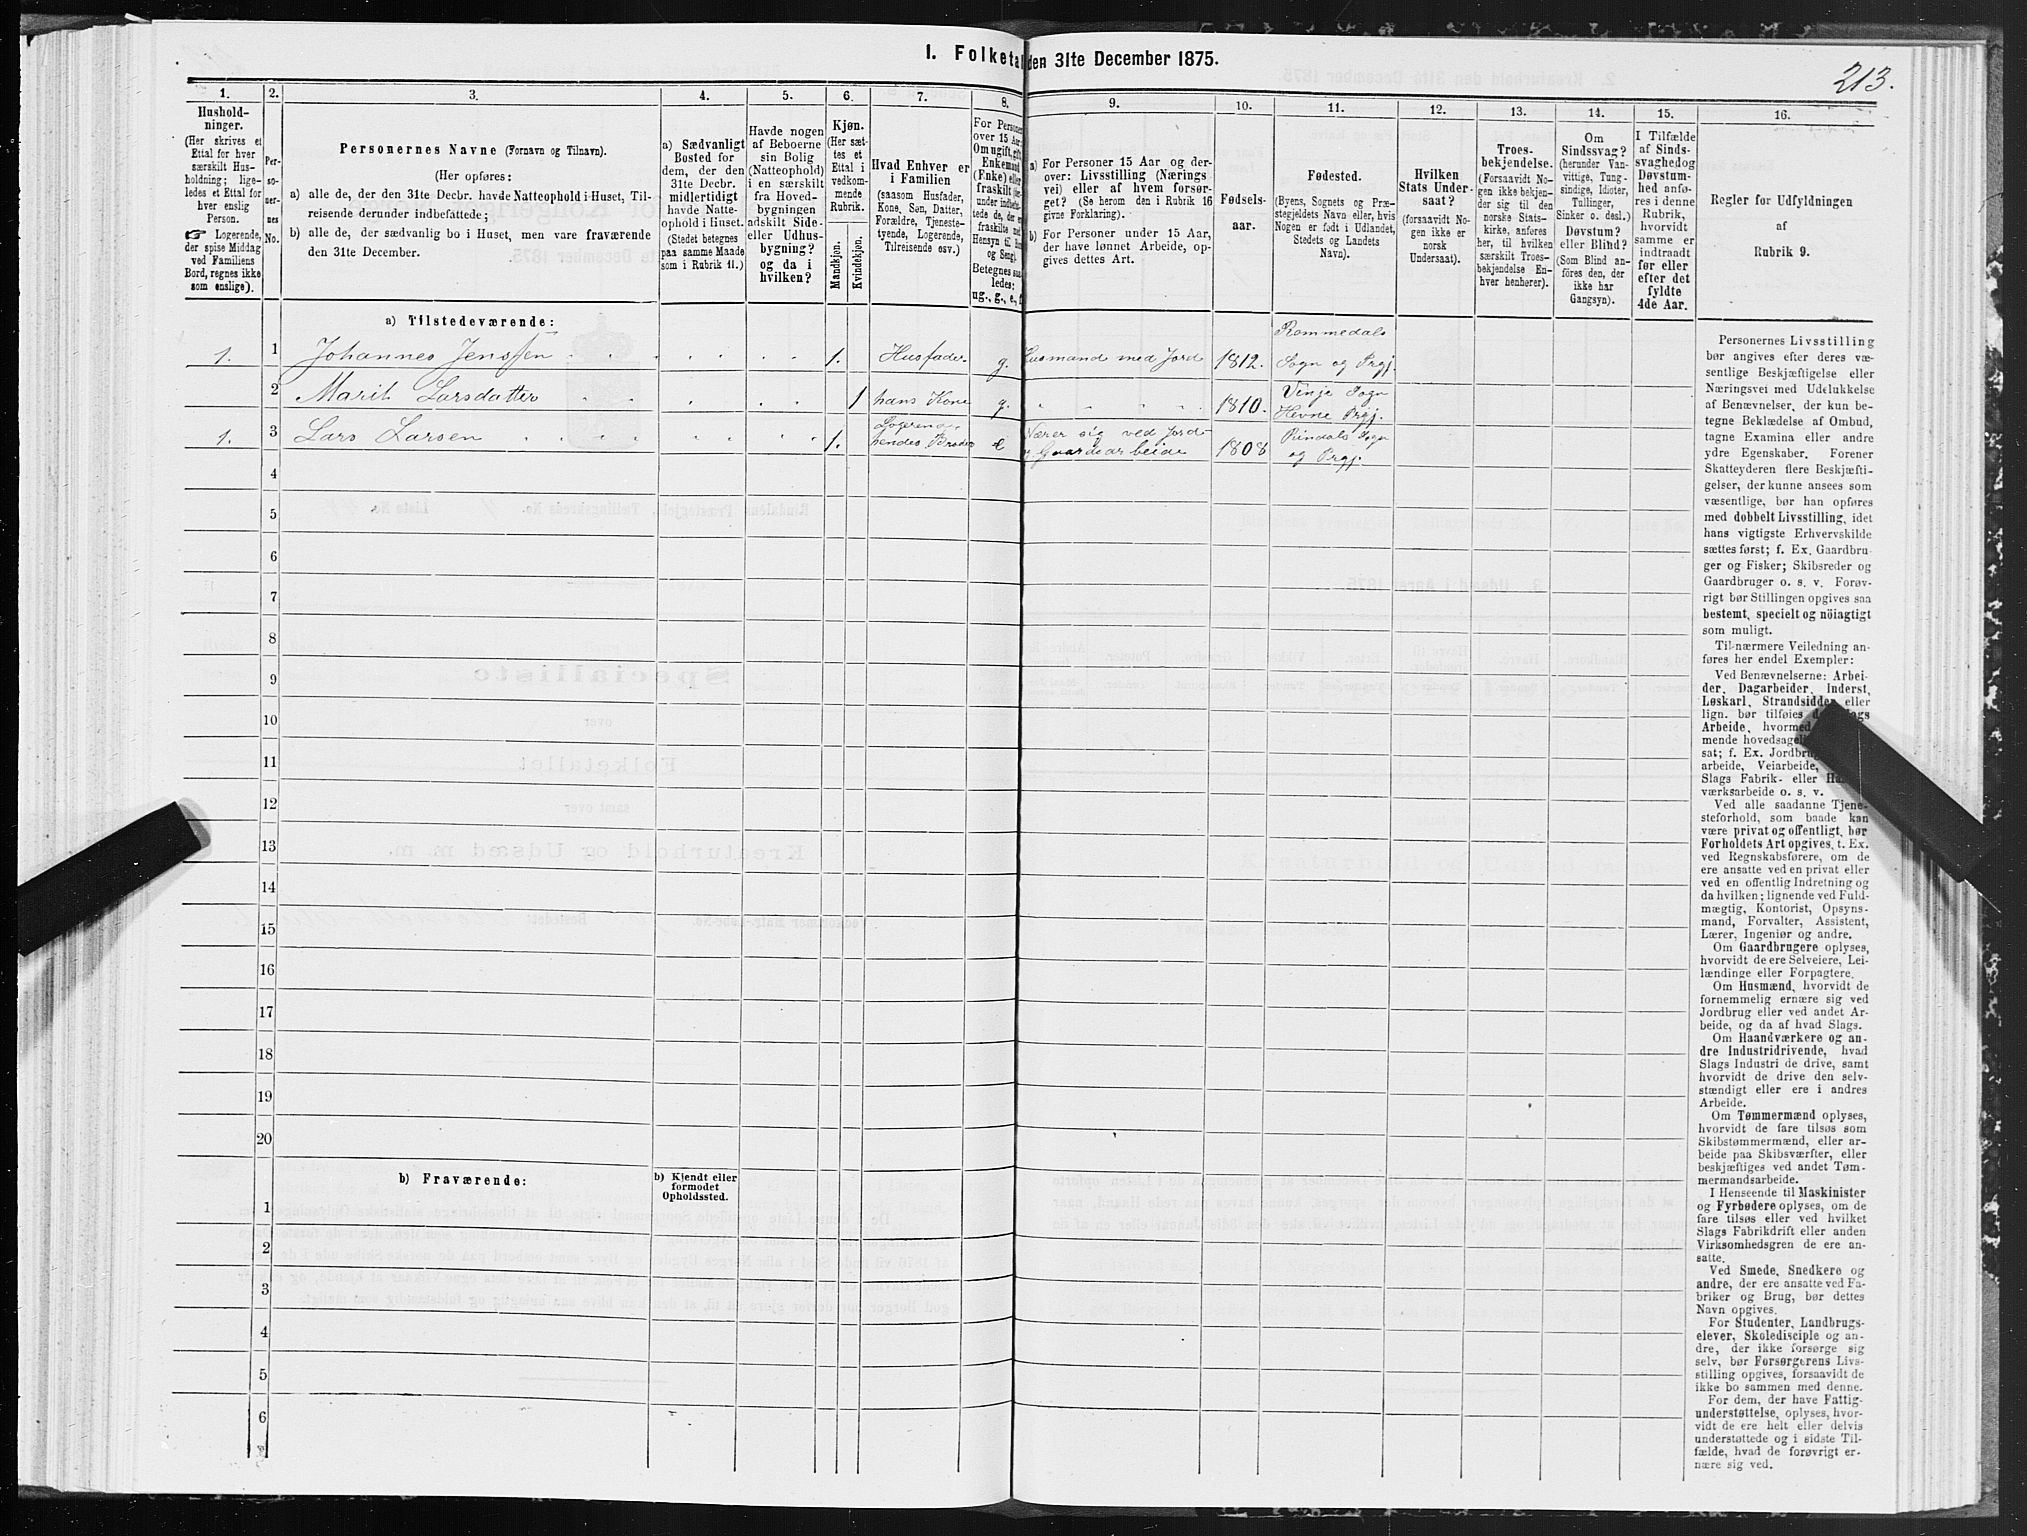 I. Folketal den 31te December 1875.
213.
1.
Hushold-
ninger.
(Her skrives et
Ettal for hver
særskilt Hus-
holdning; lige-
ledes et Ettal for
hver enslig
Person.
☞ Logerende,
der spise Middag
ved Familiens
Bord, regnes ikke
som enslige).
2.
Per-
so-
ner-
nes
No.
3.
Personernes Navne (Fornavn og Tilnavn).
(Her opføres:
a) alle de, der den 31te Decbr. havde Natteophold i Huset, Til-
reisende derunder indbefattede;
b) alle de, der sædvanlig bo i Huset, men vare fraværende
den 31te December.
4.
a) Sædvanligt
Bosted for
dem, der den
31te Decbr.
midlertidigt
havde Natte-
ophold i Huset.
(Stedet betegnes
paa samme Maade
som i Rubrik 11.)
5.
Havde nogen
af Beboerne
sin Bolig
(Natteophold)
i en særskilt
fra Hoved-
bygningen
adskilt Side-
eller Udhus-
bygning?
og da i
hvilken?
6.
Kjøn.
(Her sæt-
tes et
Ettal i
vedkom-
mende
Rubrik.
Mandkjøn.
Kvindekjøn.
7.
Hvad Enhver er
i Familien
(saasom Husfader,
Kone, Søn, Datter,
Forældre, Tjeneste-
tyende, Logerende,
Tilreisende osv.)
8.
For Personer
over 15 Aar:
Om ugift, gift,
Enkemand
(Enke) eller
fraskilt
Betegnes saa-
ledes:
ug., g., e., f.
9.
a) For Personer 15 Aar og der-
over: Livsstilling (Nærings-
vei) eller af hvem forsør-
get? (Se herom den i Rubrik 16
givne Forklaring).
b) For Personer under 15 Aar,
der have lønnet Arbeide, op-
gives dettes Art.
10.
Fødsels-
aar.
11.
Fødested.
(Byens, Sognets og Præ-
stegjeldets Navn eller, hvis
Nogen er født i Udlandet,
Stedets og Landets
Navn).
12.
Hvilken
Stats Under-
saat?
(forsaavidt No-
gen ikke er
norsk
Undersaat).
13.
Troes-
bekjendelse.
(Forsaavidt No-
gen ikke bekjen-
der sig til den
norske Stats-
kirke, anføres
her, til hvilken
særskilt Troes-
bekjendelse En-
hver henhører).
14.
Om
Sindssvag?
(herunder Van-
vittige, Tung-
sindige, Idioter,
Tullinger,
Sinker o. desl.)
Døvstum?
eller Blind?
(Som Blind an-
føres den, der
ikke har
Gangsyn).
15.
I Tilfælde
af Sinds-
svaghed og
Døvstum-
hed anfø-
res i denne
Rubrik,
hvorvidt
samme er
indtraadt
før eller
efter det
fyldte
4de Aar.
16.
Regler for Udfyldningen
af
Rubrik 9.
a) Tilstedeværende:
1. 1 Johannes Jenssen 1. Husfader g. Husmand med Jord 1812. Rommedals Sogn og Prgj.
2 Marit Larsdatter 1 hans Kone g. " " " " 1810. Vinje Sogn Hevne Prgj.
1. 3 Lars Larsen 1. Logerende, hendes Broder e Nærer sig ved Jord- og Gaardsarbeide 1808 Rindals Sogn og Prgj.
4
5
6
7
8
9
10
11
12
13
14
15
16
17
18
19
20
b) Fraværende:
b) Kjendt eller
formodet
Opholdssted.
1
2
3
4
5
6
Personernes Livsstilling
bør angives efter deres væ-
sentlige Beskjæftigelse eller
Næringsvei med Udelukkelse
af Benævnelser, der kun be-
tegne Beklædelse af Ombud,
tagne Examina eller andre
ydre Egenskaber. Forener
Skatteyderen flere Beskjæfti-
gelser, der kunne ansees som
væsentlige, bør han opføres
med dobbelt Livsstilling, idet
hans vigtigste Erhvervskilde
sættes først; f. Ex. Gaardbru-
ger og Fisker; Skibsreder og
Gaardbruger o. s. v. Forøv-
rigt bør Stillingen opgives saa
bestemt, specielt og nöiagtigt
som muligt.
Til nærmere Veiledning an-
føres her endel Exempler:
Ved Benævnelserne: Arbei-
der, Dagarbeider, Inderst,
Løskarl, Strandsidder eller
lign. bør tilføies
Arbeide, hvormed
mende hovedsagelig
sat; f. Ex. Jordbrugs-
arbeide, Veiarbeide,
Slags Fabrik- eller Haand-
værksarbeide o. s. v.
Ved alle saadanne Tjene-
steforhold, som baade kan
være privat og offentligt, bør
Forholdets Art opgives, t. Ex.
ved Regnskabsførere, om de
ere ansatte ved en privat eller
ved en offentlig Indretning og
da hvilken; lignende ved Fuld-
mægtig, Kontorist, Opsyns-
mand, Forvalter, Assistent,
Lærer, Ingeniør og andre.
Om Gaardbrugere oplyses,
hvorvidt de ere Selveiere, Lei-
lændinge eller Forpagtere.
Om Husmænd, hvorvidt de
fornemmelig ernære sig ved
Jordbrug eller ved andet Ar-
beide, og da af hvad Slags.
Om Haandværkere og an-
dre Industridrivende, hvad
Slags Industri de drive, samt
hvorvidt de drive den selv-
stændigt eller ere i andres
Arbeide.
Om Tømmermænd oplyses,
hvorvidt de fare tilsøs som
Skibstømmermænd, eller ar-
beide paa Skibsværfter, eller
beskjæftiges ved andet Tøm-
mermandsarbeide.
I Henseende til Maskinister
og Fyrbødere oplyses, om de
fare tilsøs eller ved hvilket
Slags Fabrikdrift eller anden
Virksomhedsgren de ere an-
satte.
Ved Smede, Snedkere og
andre, der ere ansatte ved Fa-
briker og Brug, bør dettes
Navn opgives.
For Studenter, Landbrugs-
elever, Skoledisciple og an-
dre, der ikke forsørge sig
selv, bør Forsørgerens Livs-
stilling opgives, forsaavidt de
ikke bo sammen med denne.
For dem, der have Fattig-
understøttelse, oplyses, hvor-
vidt de ere helt eller delvis
understøttede og i sidste Til-
fælde, hvad de forøvrigt er-
nære sig ved.